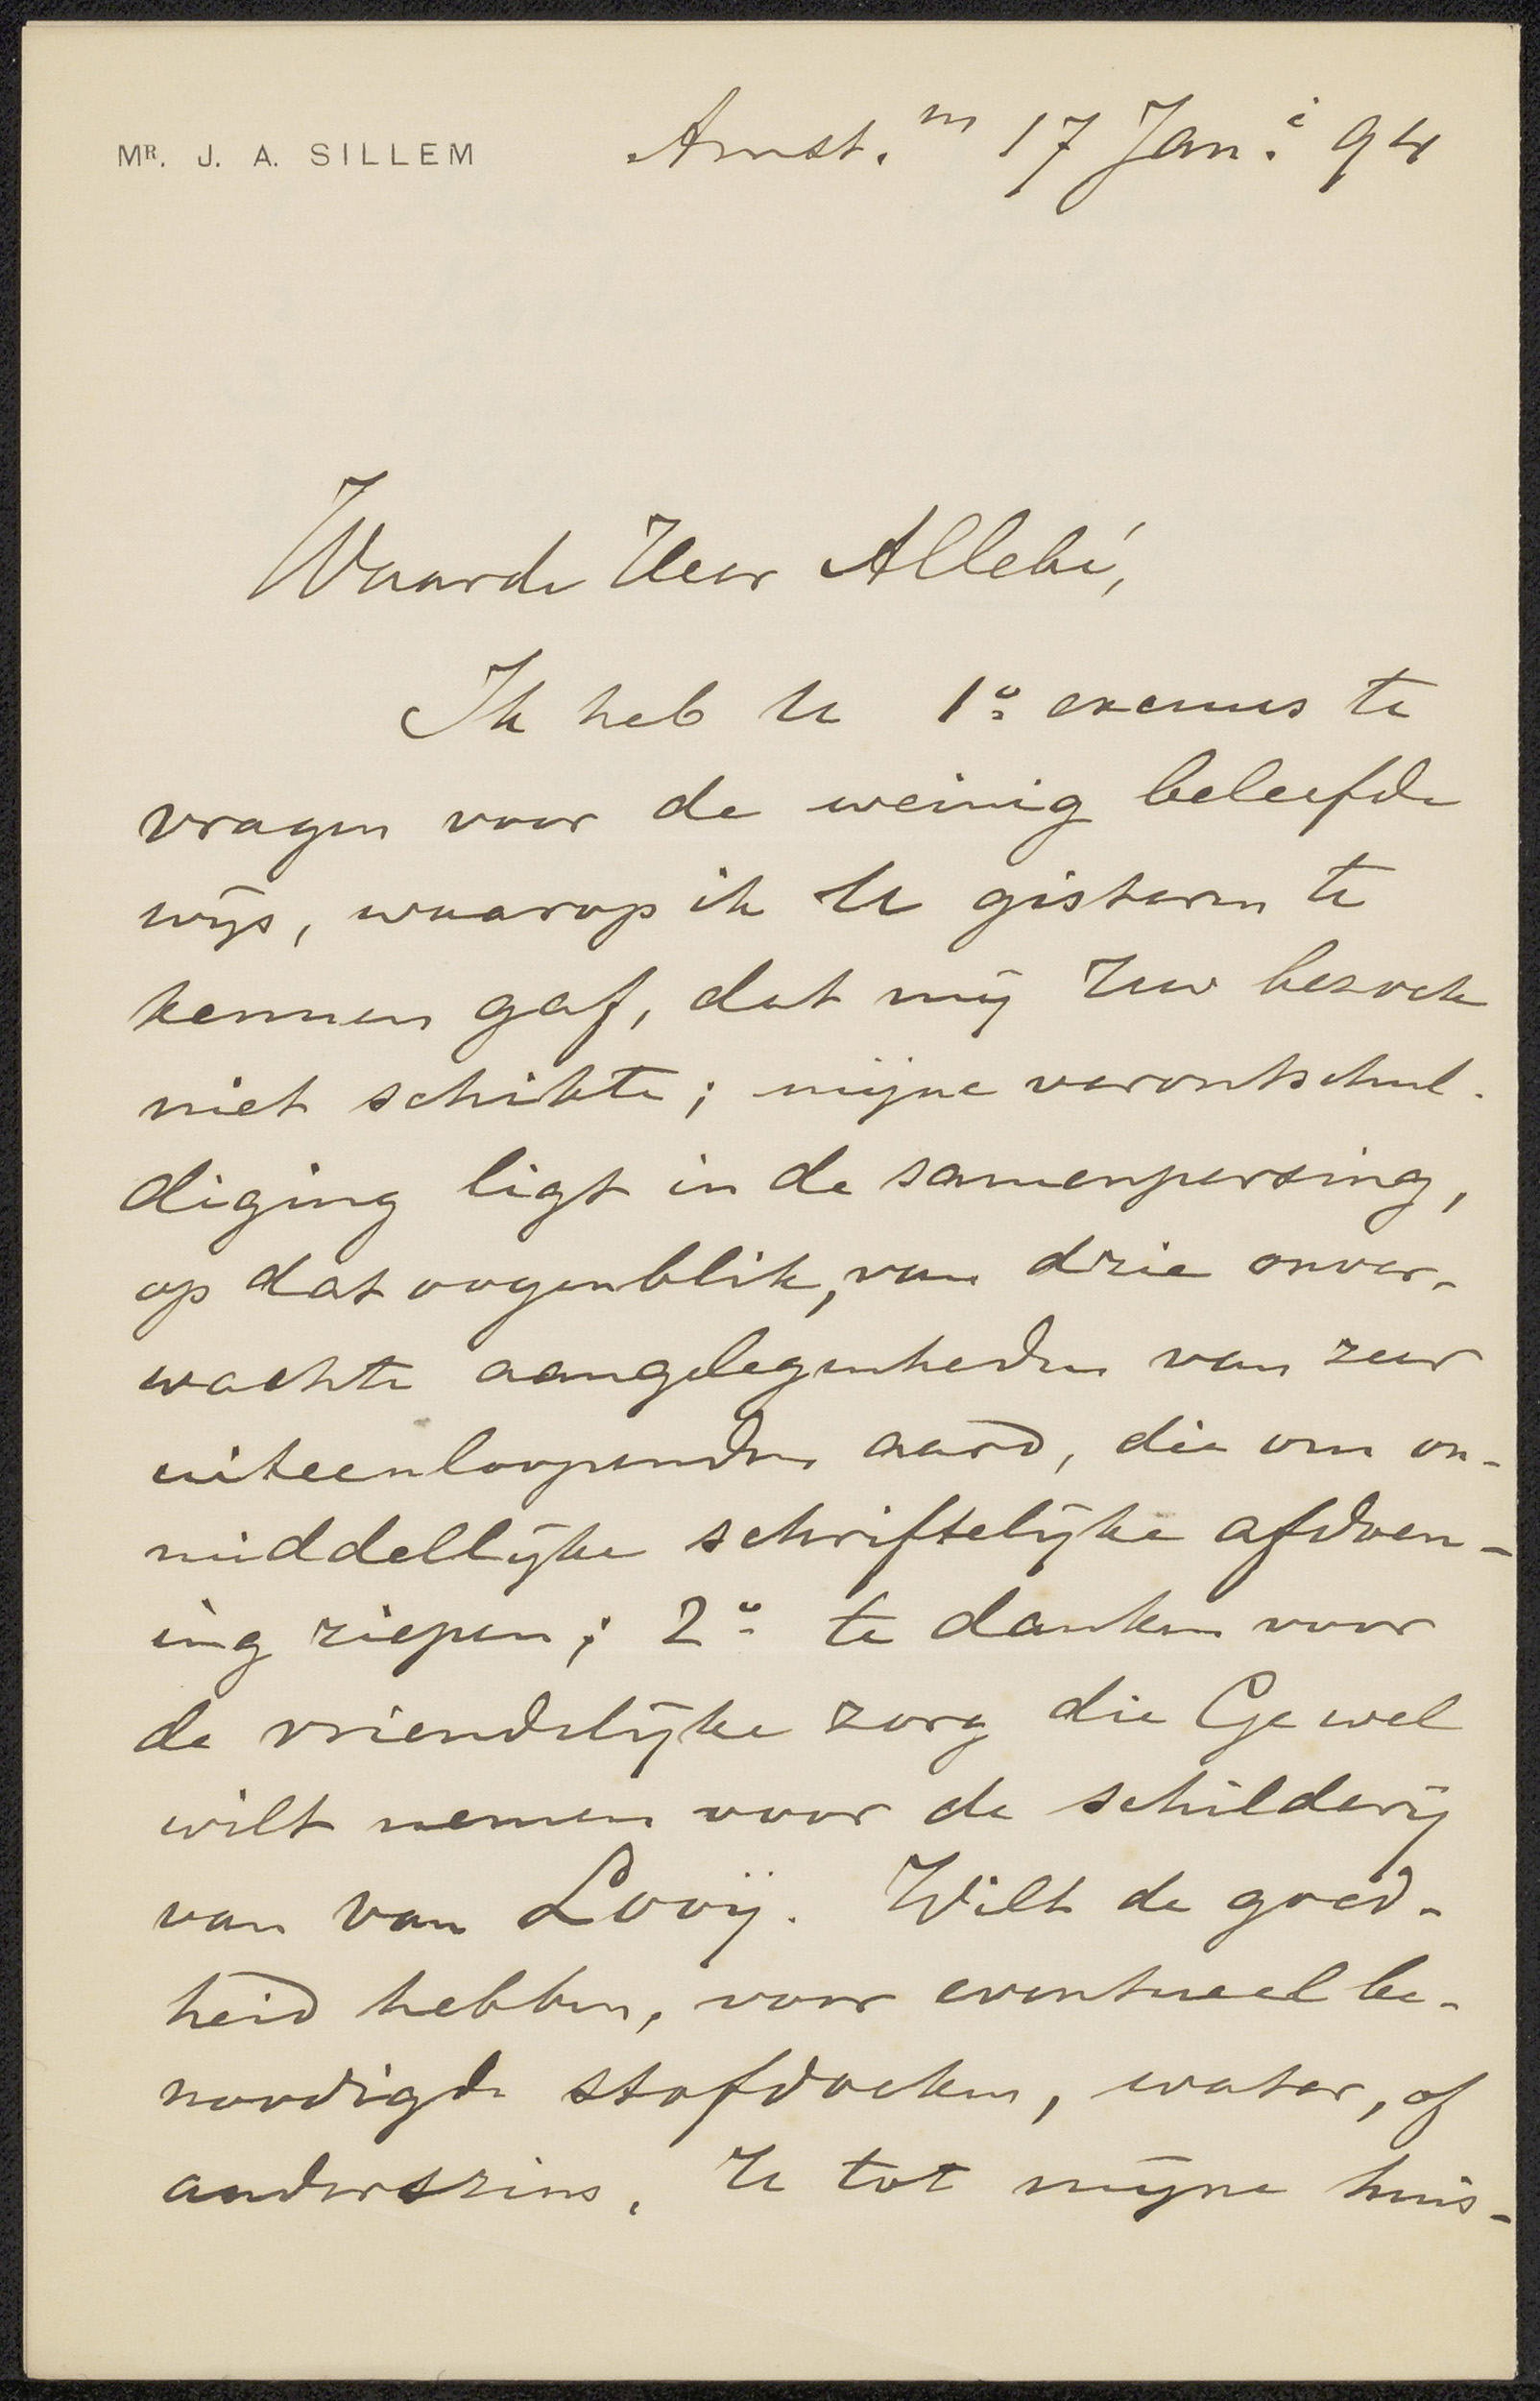 MR. J. A. SILLEM
Amst.m 17 Jan.i 94
Waarde Heer Allebé,
Ik heb U 1o excuus te
vragen voor de weinig beleefde
wijs, waarop ik U gisteren te
kennen gaf, dat mij Uw bezoek
niet schikte; mijne verontschul-
diging ligt in de samenpersing,
op dat oogenblik, van drie onver-
wachte aangelegenheden van zeer
uiteenloopenden aard, die om on-
middellijke schriftelijke afdoen-
ing riepen; 2o te danken voor
de vriendelijke zorg die Ge wel
wilt nemen voor de schilderij
van van Looij. Wilt de goed-
heid hebben, voor eventueel be-
noodigde stofdoeken, water, of
anderszins, U tot mijne huis-